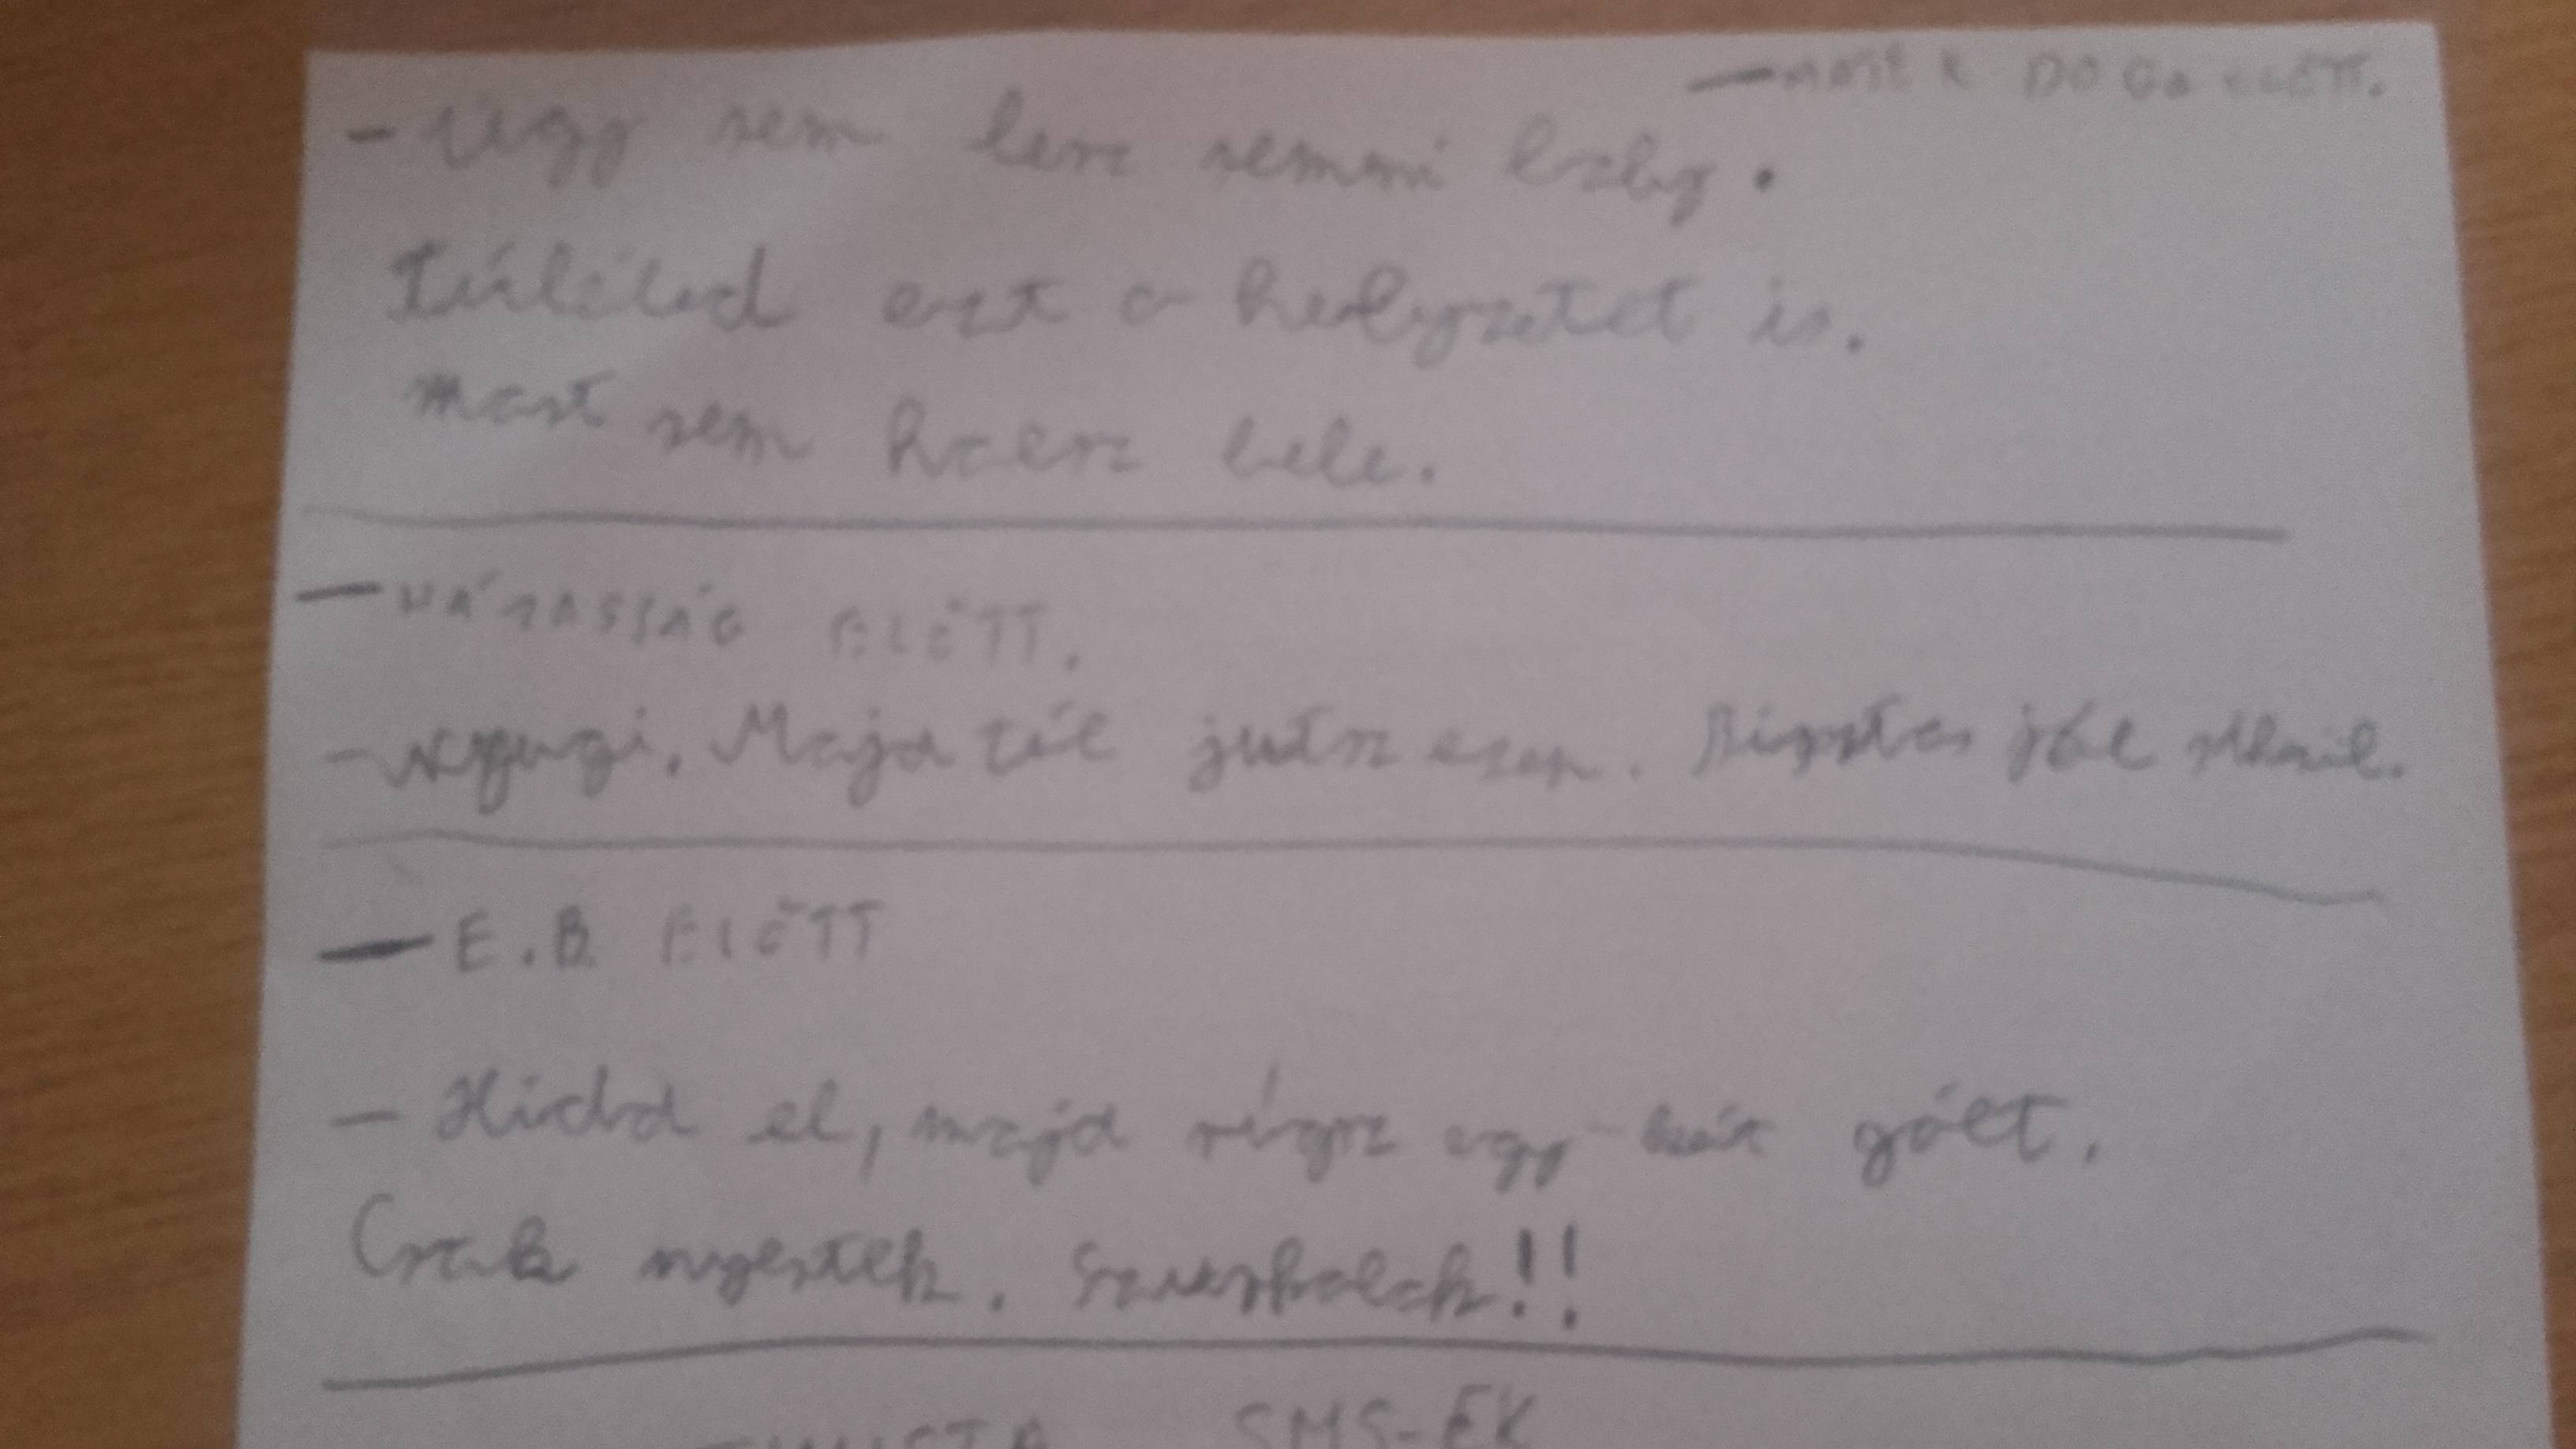 — MATEK DOGA ELŐTT.
- Úgy sem lesz semmi baj.
Túléled ezt a helyzetet is.
Most sem halsz bele.
— HÁZASSÁG ELŐTT.
- Nyugi. Majd túl jutsz ezen. Biztos jól sikerül.
— E.B. ELŐTT
- Hidd el, majd rúgsz egy gólt.
Csak nyertek. Szurkolok!!
SMS-EK